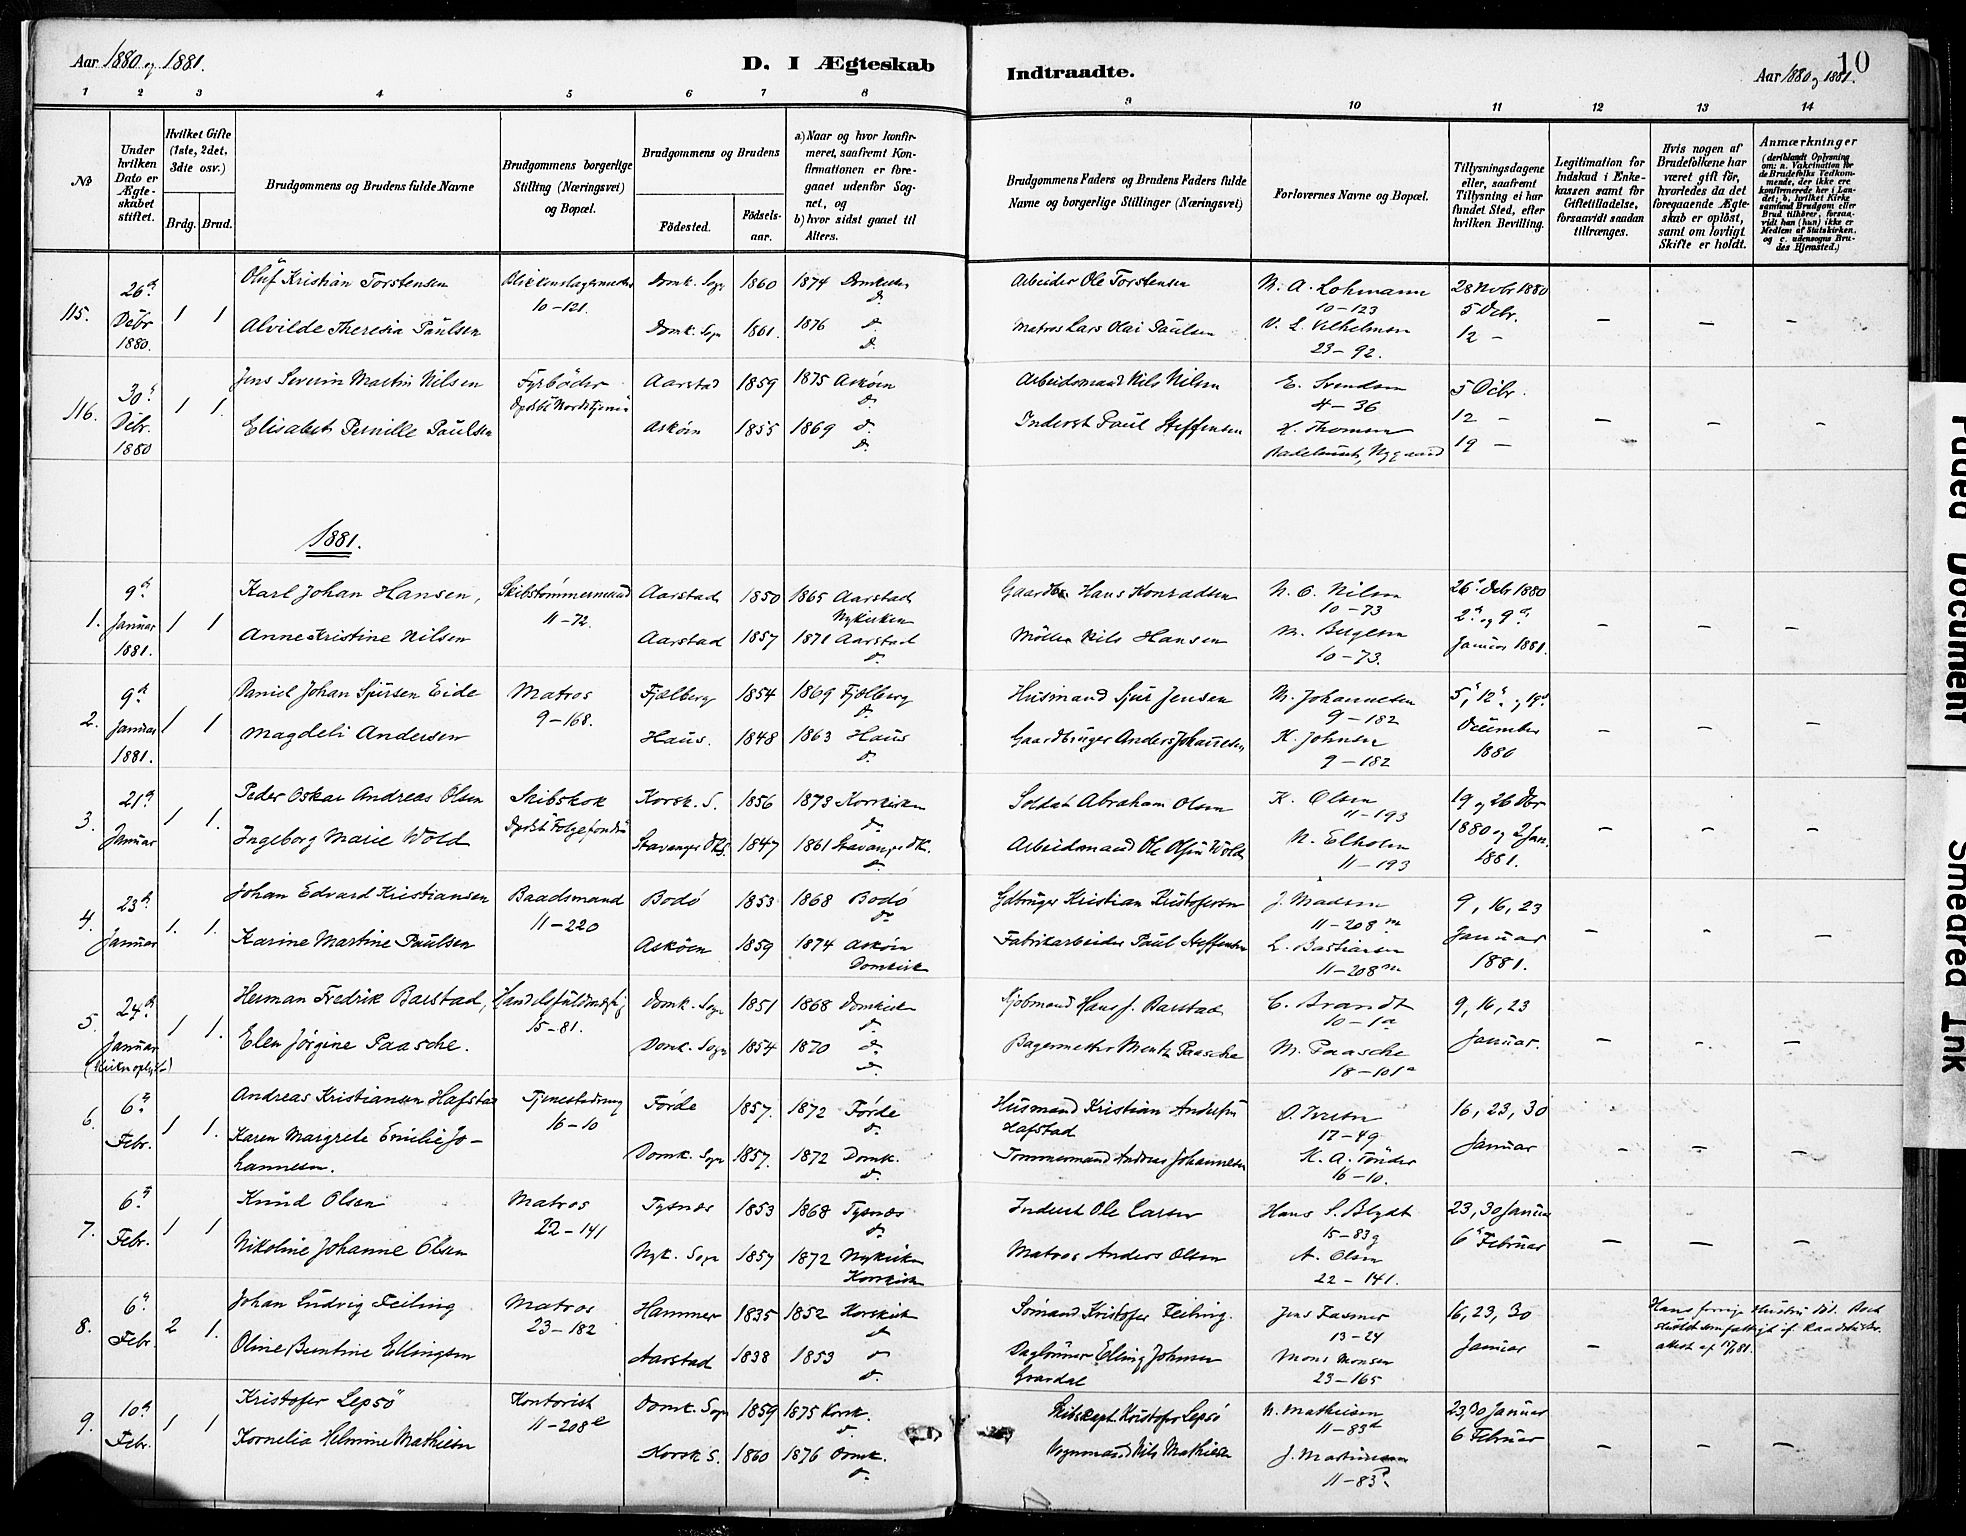 Aar 1880 og 1881.
D. I Ægteskab
Indtraadte.
Aar 1880 og 1881.
10
1 2 3 4 5 6 7 8 9 10 11 12 13 14
No
Under hvilken Dato er Ægteskabet stiftet.
Hvilket Gifte (1ste, 2det, 3die osv.)
Brdg. Brud.
Brudgommens og Brudens fulde Navne
Brudgommens borgerlige Stilling (Næringsvei) og Bopæl.
Brudgommens og Brudens
Fødested.
Fødselsaar.
a) Naar og hvor konfirmeret, saafremt Konfirmationen er foregaaet udenfor Sognet, og
b) hvor sidst gaaet til Alters.
Brudgommens Faders og Brudens Faders fulde Navne og borgerlige Stillinger (Næringsvei)
Forlovernes Navne og Bopæl.
Tillysningsdagene eller, saafremt Tillysning ei har fundet Sted, efter hvilken Bevilling.
Legitimation for Indskud i Enkekassen samt for Giftetilladelse, forsaavidt saadan tiltrænges.
Hvis nogen af Brudefolkene har været gift før, hvorledes da det foregaaende Ægteskab er opløst, samt om lovligt Skifte er holdt.
Anmærkninger
(deriblandt Oplysning om: a. Vakcination for de Brudefolks Vedkommende, der ikke ere konfirmerede her i Landet; b. hvilket Kirkesamfund Brudgom eller Brud tilhører, forsaavidt han (hun) ikke er Medlem af Statskirken, og c. udensogns Brudes Hjemsted.)
115. 26d Debr 1880. 1 1
Oluf Kristian Torstensen 10-121. Domk. Sogn 1860 1874 Domkirken d. Arbeider Ole Torstensen M. A. Lohmann 10-123 28 Nvbr 1880 5 Debr.
Alvilde Theresia Paulsen Domk. Sogn 1861. 1876 d. d. Matros Lars Olai Paulsen V. L. Vilhelmsen 23-92. 12 -
116. 30d Debr. 1880 1 1.
Jens Severin Martin Nilsen Fyrbøder Aarstad 1859 1875 Askøen d. Arbeidsmand Nils Nilsen E. Svendsen 4-36 5 Debr.
Elisabet Pernille Paulsen Askøen 1855 1869 d. d. Inderst Paul Steffensen H. Thomsen 12 - 19 -
1881.
1. 9d Januar 1881. 1 1
Karl Johan Hansen, Skibstømmermand 11-72. Aarstad 1850 1865 Aarstad Nykirken Hans Konradsen N. O. Nilsen 10-73 26d Debr 1880
Anne Kristine Nilsen Aarstad 1857 1871 Aarstad d. Møller Nils Hansen 10-73. 2d og 9d Januar 1881.
2. 9d Januar 1881. 1 1
Daniel Johan Sjursen Eide Matros 9-168. Fjælberg 1854 1869 Fjælberg d. Husmand Sjur Jensen M. Johannesen 9-182 5d, 12d og 19d
Magdeli Andersen Haus. 1848 1863 Haus d. Gaardbruger Anders Johannesen K. Johnsen 9-182 December 1880
3. 21d Januar 1 1.
Peder Oskar Andreas Olsen Skibskok Korsk. S. 1856 1873 Korskirken d. Soldat Abraham Olsen K. Olsen 11-193 19 og 26 Dbr
Ingeborg Marie Wold Stavanger 1847 1861 Stavanger DK. d. Arbeidsmand Ole Olsen Wold N. Elholm 11-193 1880 og 2 Jan. 1881.
4. 23d Januar 1. 1.
Johan Edvard Kristiansen Baadsmand 11-220 Bodø 1853 1868 Bodø do Gdbruger Kristian Kristofersen J. Madsen 11-208m 9, 16, 23
Karine Martine Paulsen Askøen 1859 1874 Askøen Domkirk Fabrikarbeider Paul Steffensen L. Bastiansen 11-208m Januar 1881.
5. 24d Januar 1 1.
Herman Fredrik Barstad, Handelsfuldmægtig 15-81. Domk. Sogn 1851 1868 Domkirken d. Kjøbmand Hans J. Barstad C. Brandt 10-1a 9, 16, 23
Elen Jørgine Paasche. Domk. Sogn 1854 1870 d. d. Bagermester Mentz Paasche M. Paasche 18-101a Januar.
6. 6d Febr. 1 1.
Andreas Kristiansen Hafstad Tjenestedreng 16-10 Førde 1857. 1872 Førde d. Husmand Kristian Andersen Hafstad O. Iversen 17-49 16, 23, 30
Karen Margrete Emilie Johannesen. Domk. Sogn 1857. 1872 Domk. d. Tømmermand Andreas Johannesen K. A. Tønder 16-10. Januar
7. 6d Febr. 1 1
Knud Olsen Matros 22-141 Tysnæs 1853 1868 Tysnæs d. Inderst Ole Larsen Hans S. Blydt 15-83g 23, 30 Januar
Nikoline Johanne Olsen Nyk. Sogn 1857 1872 Nykirken Korskirk Matros Anders Olsen A. Olsen 22-141. 6d Februar
8. 6d Febr. 2 1.
Johan Ludvig Feiling Matros 23-182 Hammer 1835 1852 Korskirk d. Sømand Kristofer Feiling. Jens Fasmer 13-24 16, 23, 30 Hans forrige Hustru død.
Oline Bentine Ellingsen Aarstad 1838 1853 d. d. Daglønner Elling Johnsen Mons Monsen 23-165 Januar
9. 10d Febr. 1 1
Kristofer Lepsö Kontorist 11-208e Domk. Sogn 1859 1875 Korsk. d. Skibskapt. Kristofer Lepsö N. Mathiesen 11-83d 23, 30 Januar
Kornelia Helmine Mathiesen Korsk S. 1860 1876 Domk. d. Vognmand Nils Mathiesen 6 Februar
Faded Document
Smeared Ink